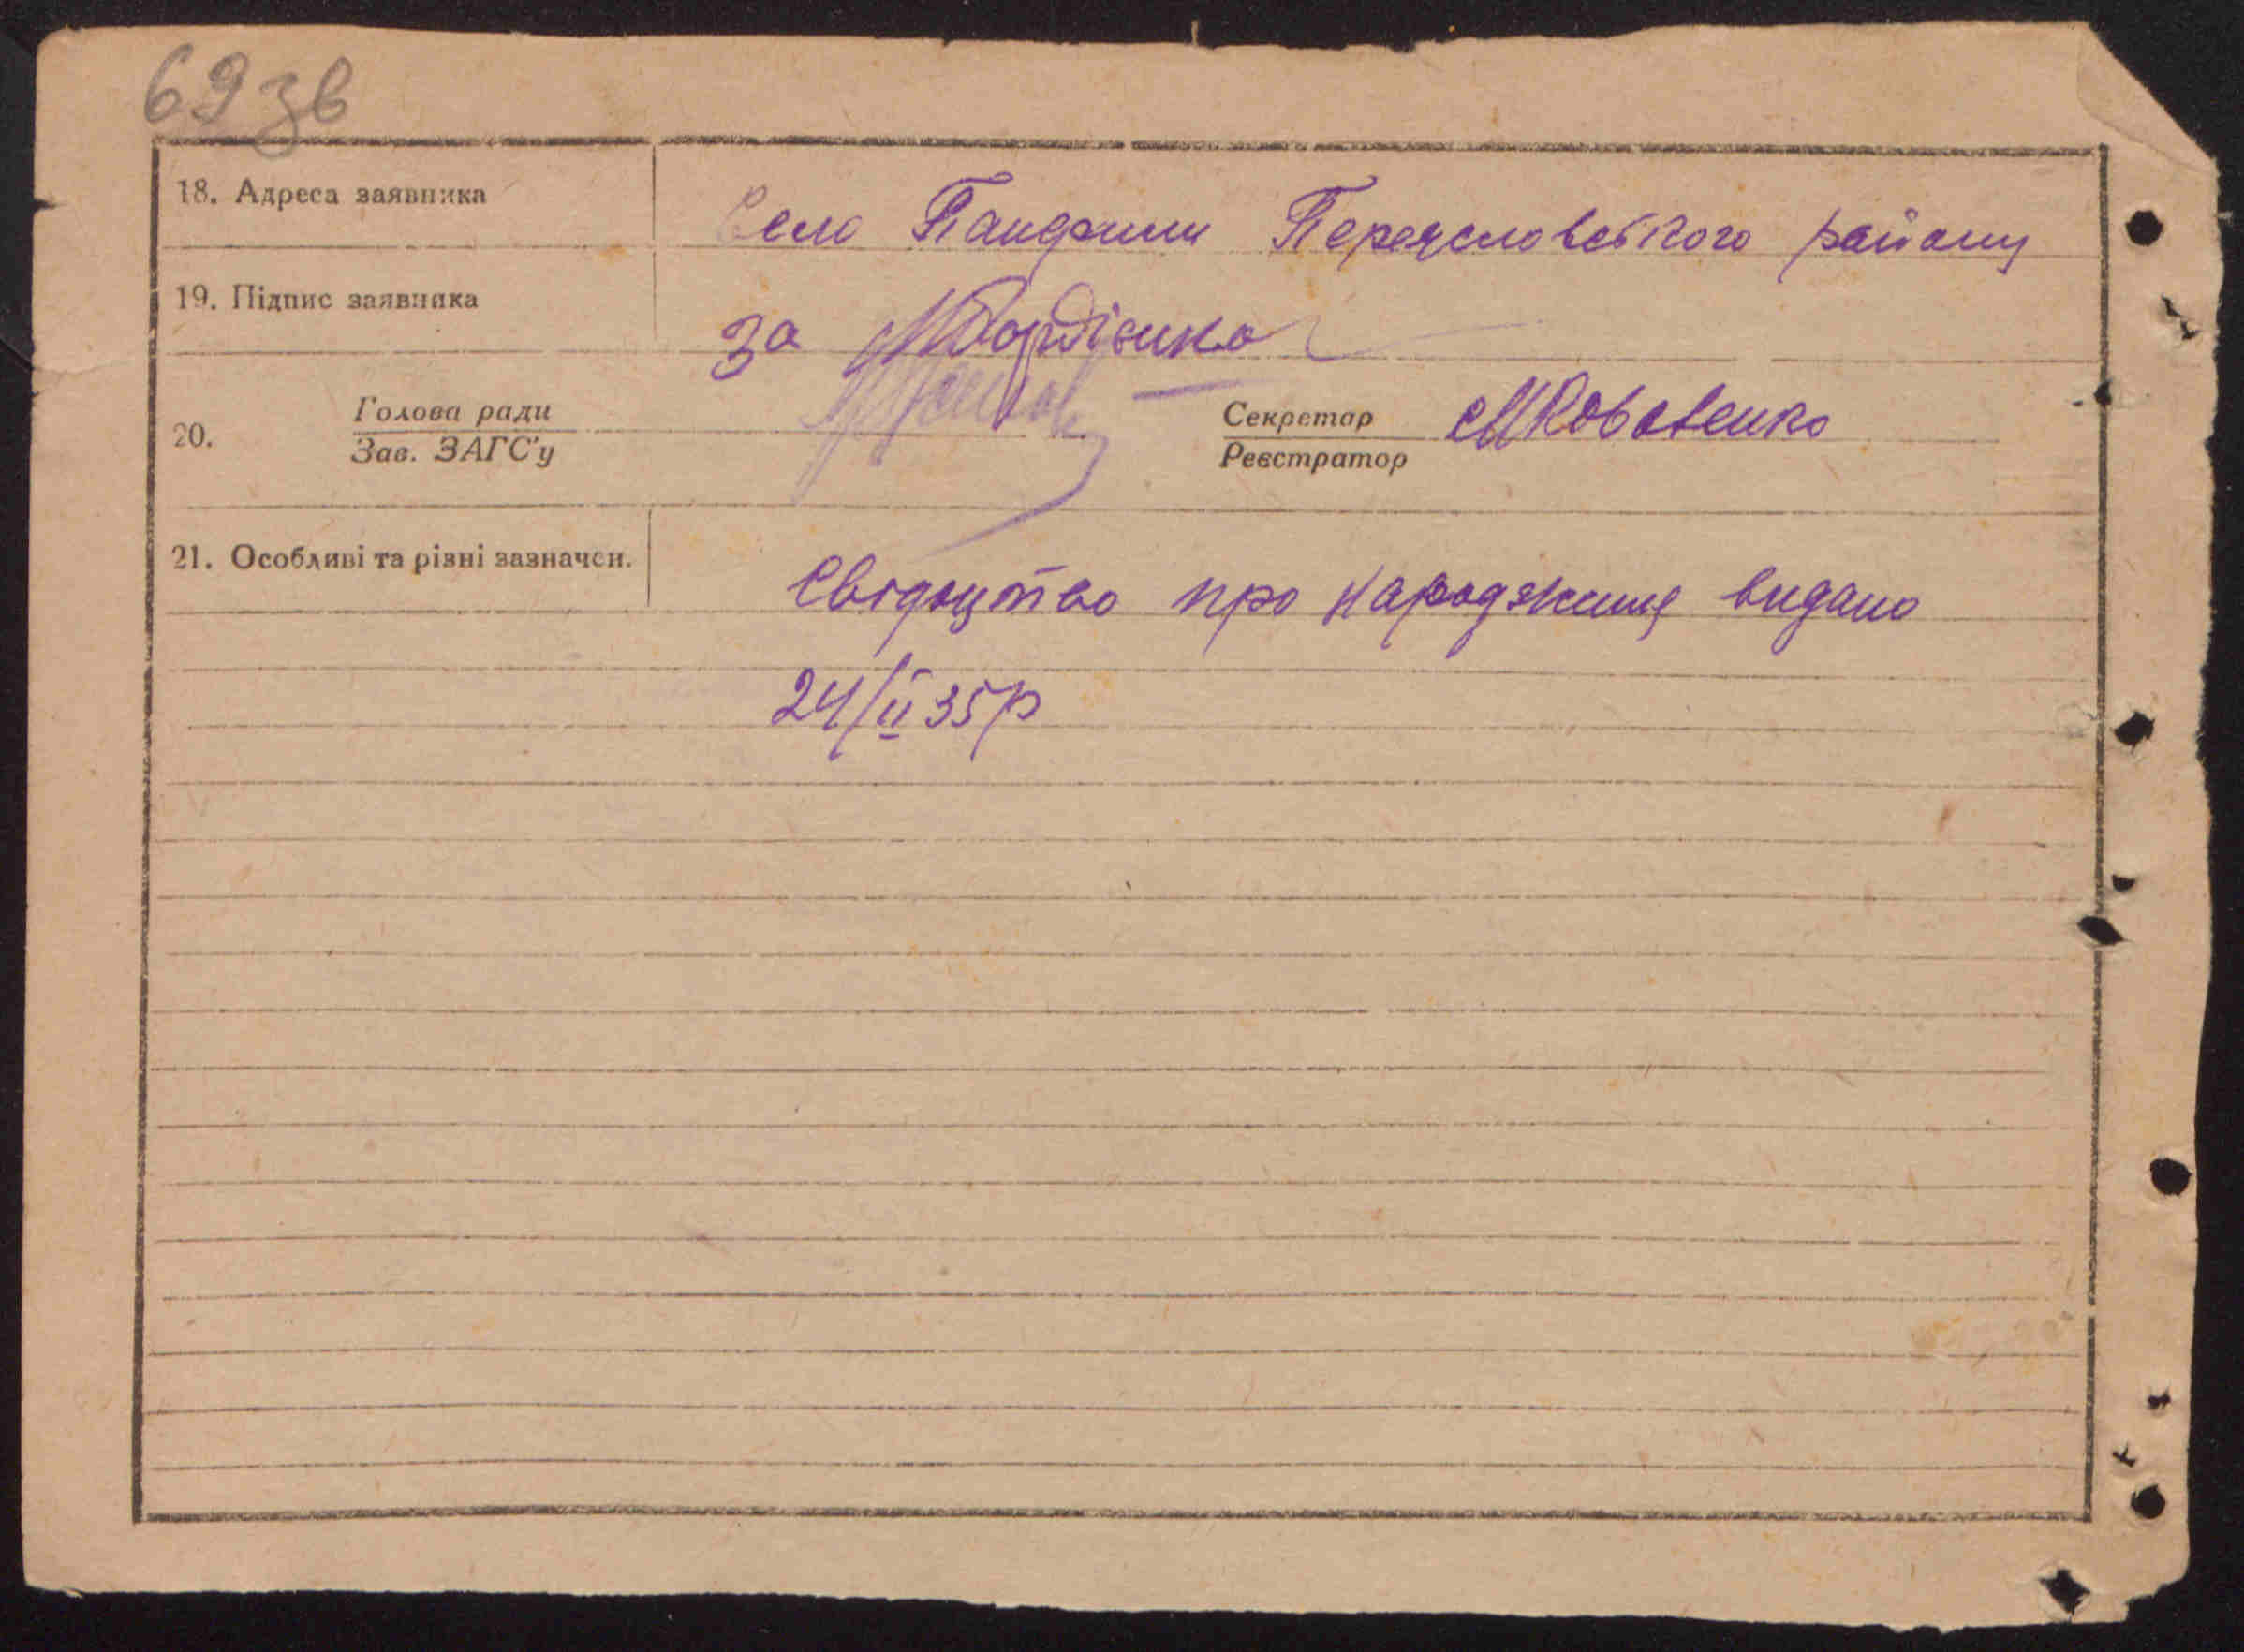 69зв
18. Адреса заявника
Село Панфили Переясловського району
19. Підпис заявника
За
20. Голова ради
Зав. ЗАГС'у
Секретар
Реєстратор
МКоваленко
21. Особливі та різні зазначен.
Свідоцтво про народженя видано
24/II 35р